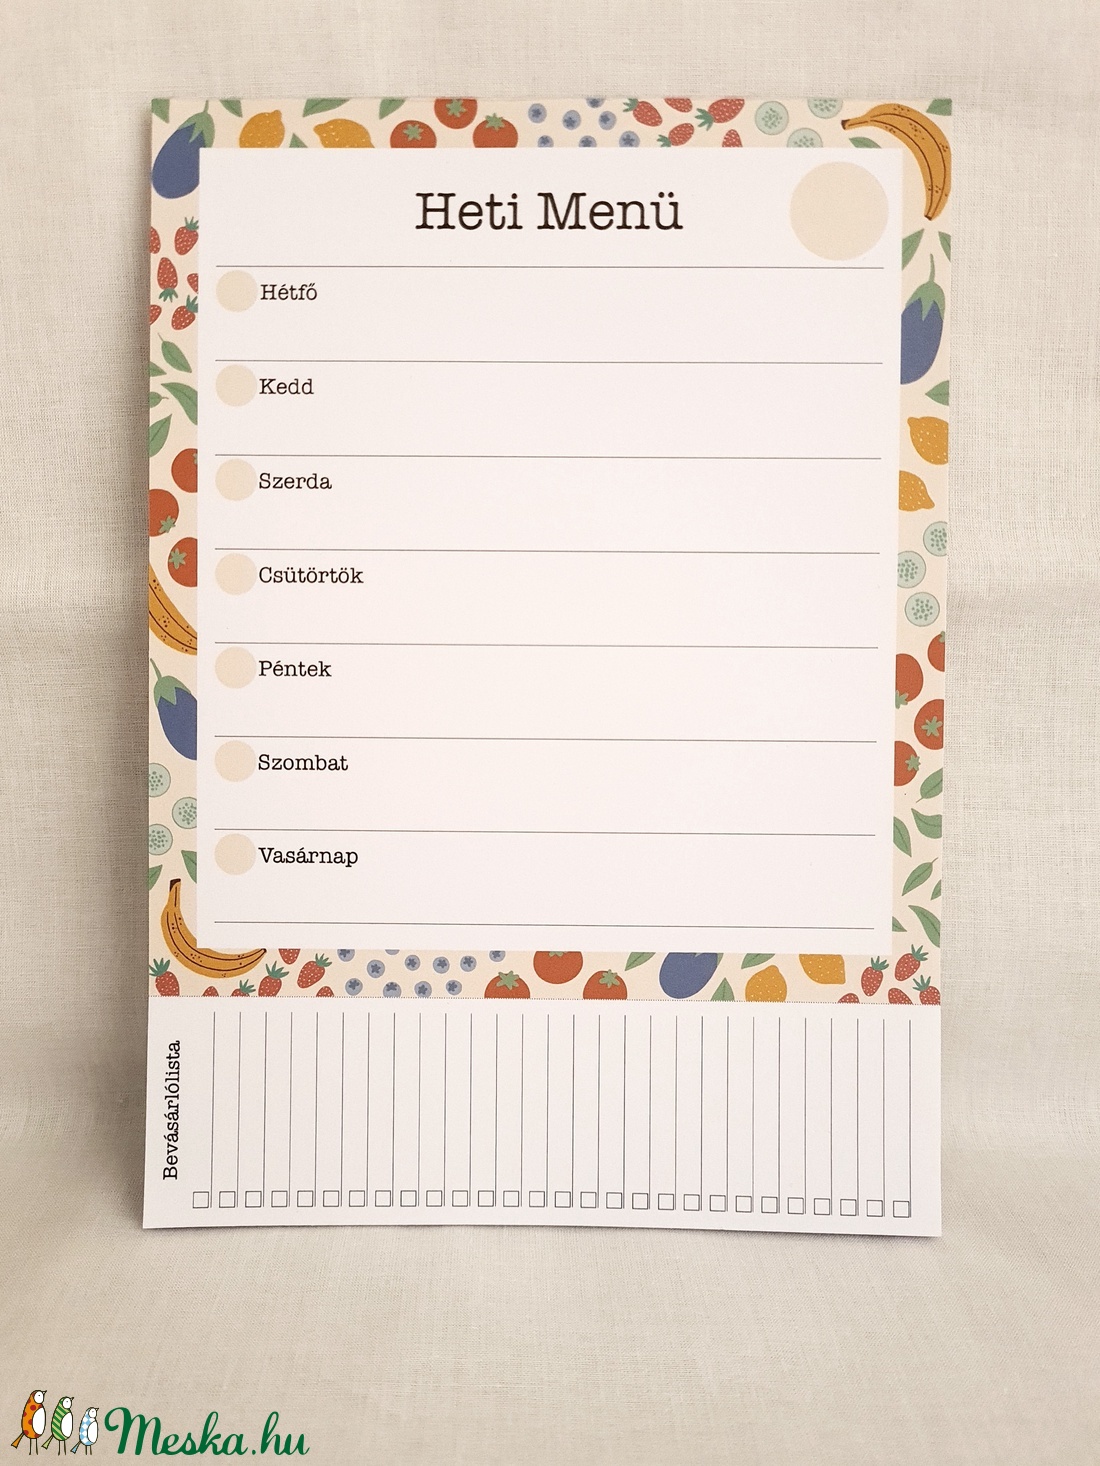 Heti Menü
Hétfő
Kedd
Szerda
Csütörtök
Péntek
Szombat
Vasárnap
Bevásárlólista
Meska.hu